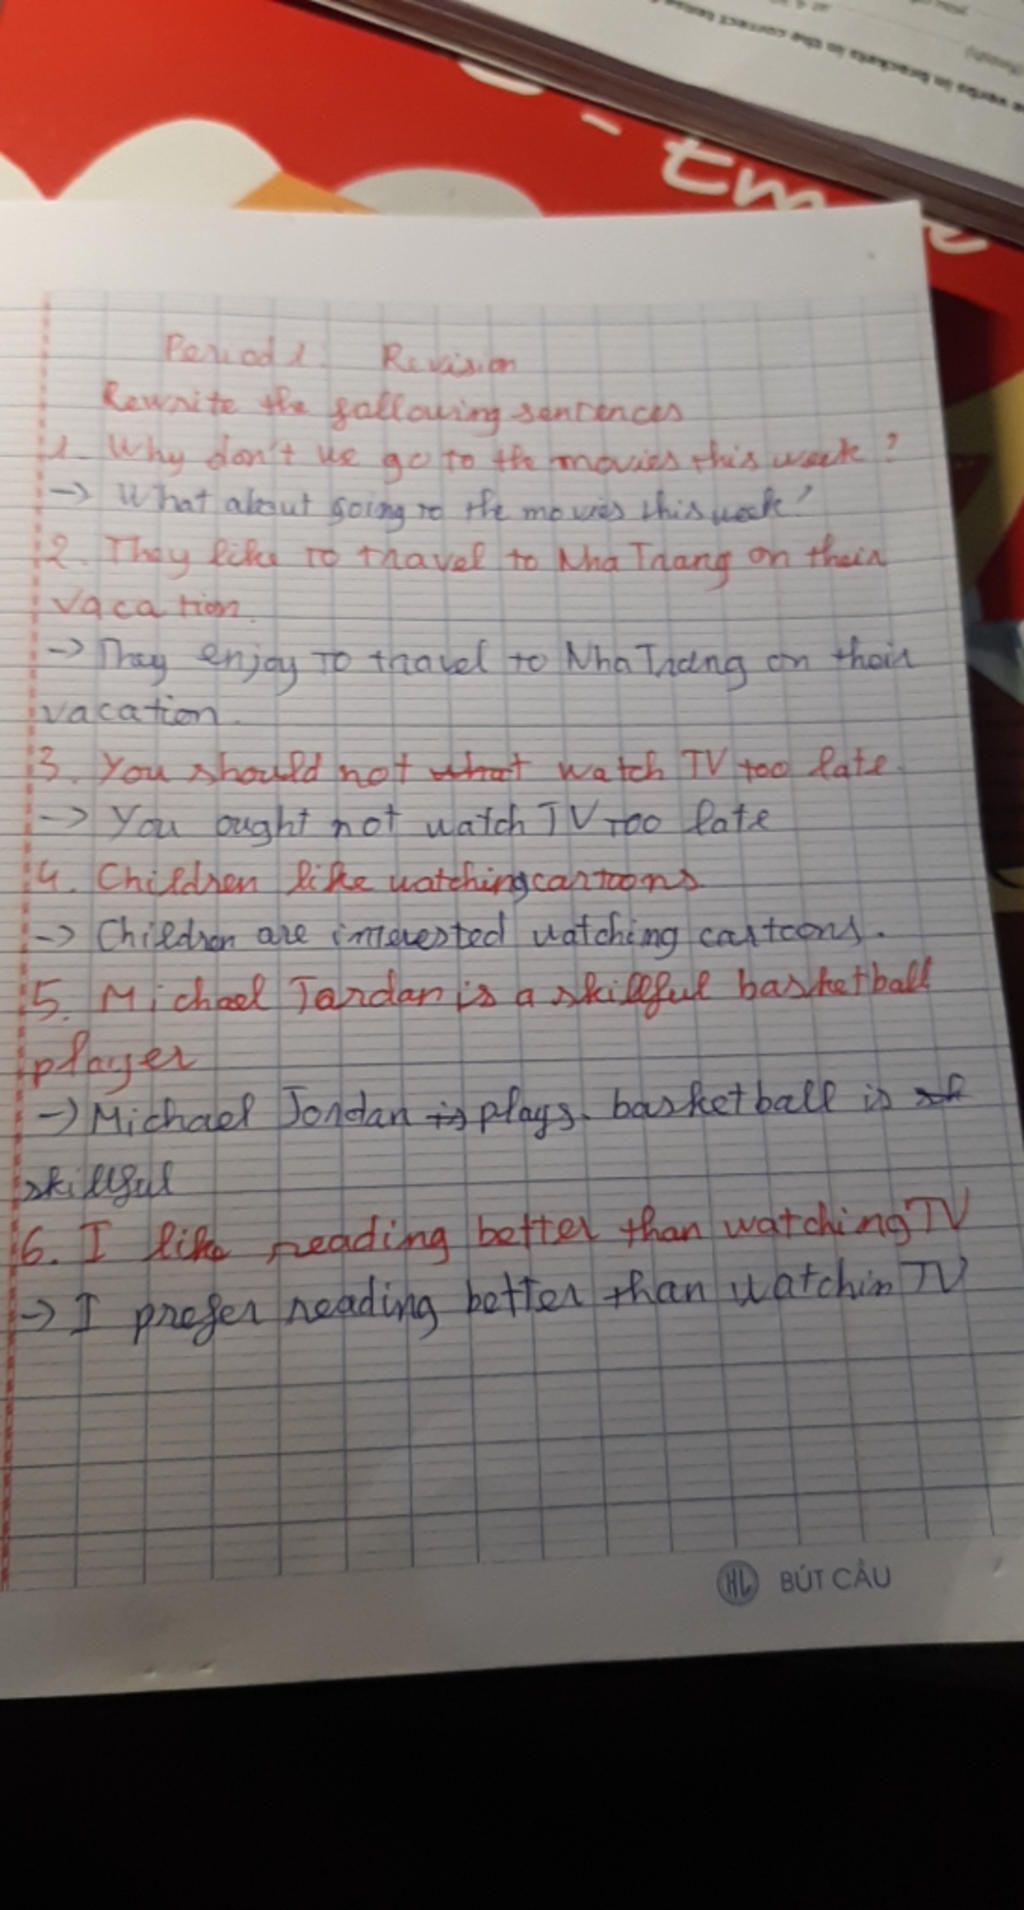 verbs in brackets in the correct tense
- tm
Period 1 Revision
Rewrite the following sentences
1. Why don't we go to the movies this week?
-> What about going to the movies this week?
2. They like to travel to Nha Trang on their
vacation.
-> They enjoy to travel to Nha Trang on their
vacation.
3. You should not what watch TV too late.
-> You ought not watch TV too late
4. Children like watching cartoons
-> Children are interested watching cartoons.
5. Michael Jordan is a skillful basketball
player
-> Michael Jordan is plays basketball is
skillful
6. I like reading better than watching TV
-> I prefer reading better than watchin TV
HL BÚT CẦU